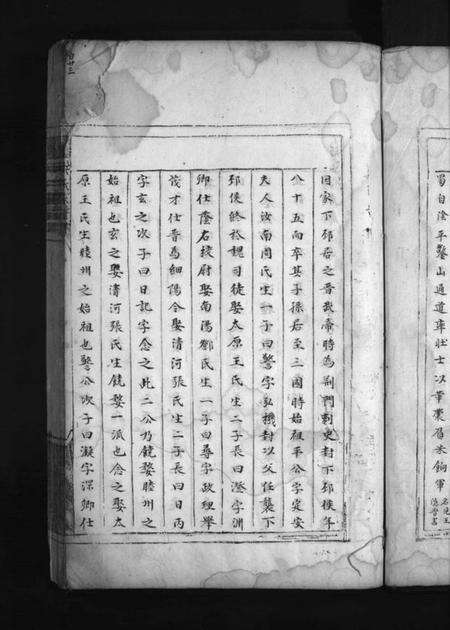 蜀自陰平鑿山通道率壯士以葦裹眉米餉軍
因家下邳居之晉武帝時為荆門刺史封下邳侯年
八十五而卒其子孫居至三國時始祖平公字安
夫人汝南周氏生一子曰警字弘機封以父任襲下
邳侯終於魏司徒娶太原王氏生二子長曰澄字淵
卿仕蔭右校尉娶南陽鄧氏生一子曰尋字政經舉
茂才仕晉為細陽令娶清河張氏生二子長曰日丙
字玄之次子曰日記字念之此二公乃饒婺睦州之
始祖也玄之娶清河張氏生饒婺一派也念之娶太
原王氏生睦州之始祖也警公次子曰凝字深卿仕